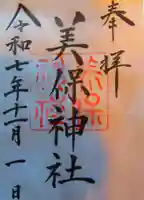 奉拝
美保神社
令和七年十一月一日